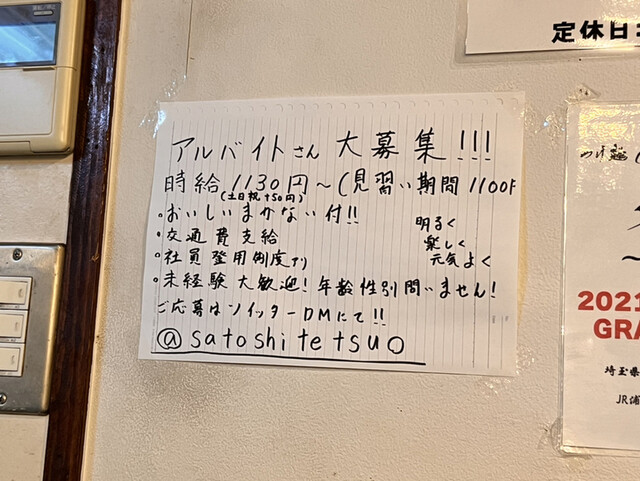 定休日:
アルバイトさん 大募集!!!
時給 1130円~(見習い期間 1100円
(土日祝+50円)
・おいしいまかない付!!
・交通費支給
・社員登用制度アリ
明るく
楽しく
元気よく
・未経験大歓迎!年齢性別問いません!
ご応募はツイッターDMにて!!
@satoshitetsuo
つけ麺
2021
GRA
埼玉県
JR浦